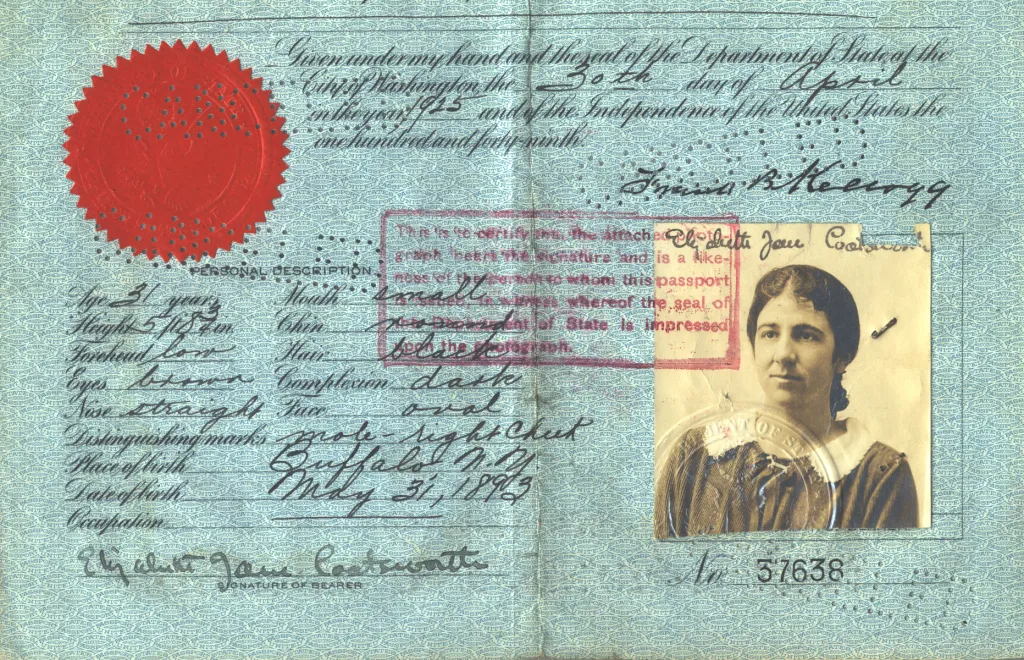 Given under my hand and the seal of the Department of State at the
City of Washington, the 30th day of April
in the year 1925 and of the Independence of the United States the
one hundred and forty-ninth.
Frank B Kellogg
This is to certify that the attached photo-
graph bears the signature and is a like-
ness of the person to whom this passport
is issued. In witness whereof the seal of
the Department of State is impressed
upon the photograph.
Elizabeth Jane Coatsworth
PERSONAL DESCRIPTION
Age 31 years Mouth small
Height 5 ft 8 3/4 in. Chin round
Forehead low Hair black
Eyes brown Complexion dark
Nose straight Face oval
Distinguishing marks mole - right cheek
Place of birth Buffalo, N.Y.
Date of birth May 31, 1893
Occupation
Elizabeth Jane Coatsworth
SIGNATURE OF BEARER
No 37638